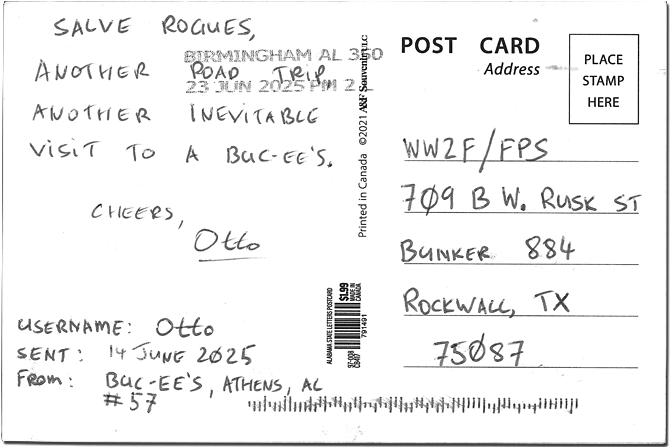 SALVE ROGUES,
BIRMINGHAM AL 350
ANOTHER ROAD TRIP,
23 JUN 2025 PM 2 L
ANOTHER INEVITABLE
VISIT TO A BUC-EE'S.
CHEERS,
Otto
USERNAME: Otto
SENT: 14 JUNE 2025
FROM: BUC-EE'S, ATHENS, AL
#57
Printed in Canada ©2021 A&F Souvenir LLC
ALABAMA STATE LETTERS POSTCARD
$1.99
MADE IN
CANADA
791491
POST CARD
Address
PLACE
STAMP
HERE
WW2F/FPS
709 B W. RUSK ST
BUNKER 884
ROCKWALL, TX
75087